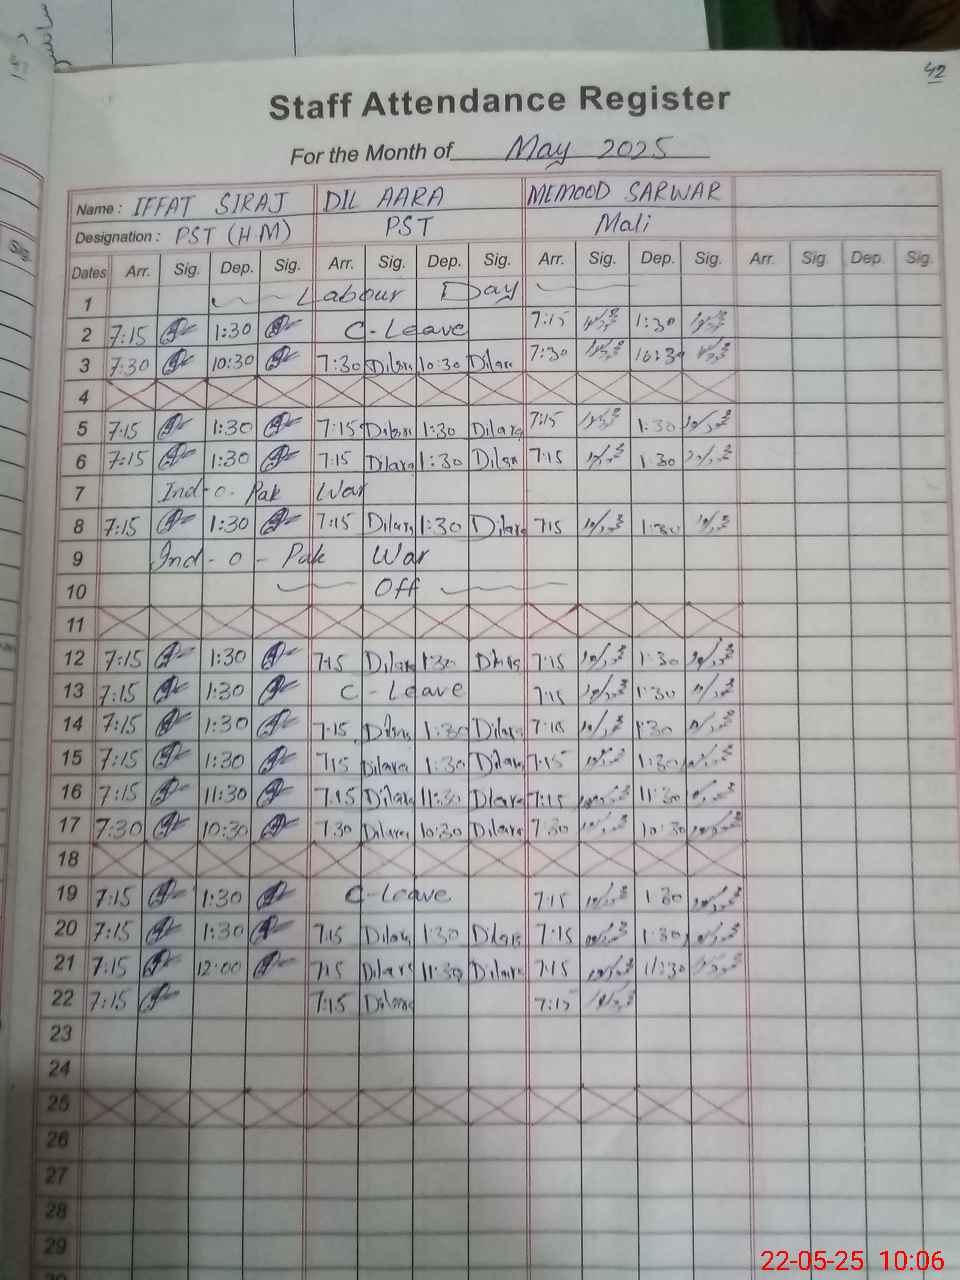 42
Staff Attendance Register
For the Month of May 2025
Name : IFFAT SIRAJ DIL AARA MEMOOD SARWAR
Designation : PST (H.M) PST Mali
Dates Arr. Sig. Dep. Sig. Arr. Sig. Dep. Sig. Arr. Sig. Dep. Sig. Arr. Sig. Dep. Sig.
1 Labour Day
2 7:15 1:30 C-Leave 7:15 1:30
3 7:30 10:30 7:30 Dilara 10:30 Dilara 7:30 10:30
4
5 7:15 1:30 7:15 Dilara 1:30 Dilara 7:15 1:30
6 7:15 1:30 7:15 Dilara 1:30 Dilara 7:15 1:30
7 Ind-o-Pak War
8 7:15 1:30 7:15 Dilara 1:30 Dilara 7:15 1:30
9 Ind-o-Pak War
10 Off
11
12 7:15 1:30 7:15 Dilara 1:30 Dilara 7:15 1:30
13 7:15 1:30 C-Leave 7:15 1:30
14 7:15 1:30 7:15 Dilara 1:30 Dilara 7:15 1:30
15 7:15 1:30 7:15 Dilara 1:30 Dilara 7:15 1:30
16 7:15 11:30 7:15 Dilara 11:30 Dilara 7:15 11:30
17 7:30 10:30 7:30 Dilara 10:30 Dilara 7:30 10:30
18
19 7:15 1:30 C-Leave 7:15 1:30
20 7:15 1:30 7:15 Dilara 1:30 Dilara 7:15 1:30
21 7:15 12:00 7:15 Dilara 11:30 Dilara 7:15 11:30
22 7:15 7:15 Dilara 7:15
23
24
25
26
27
28
29
22-05-25 10:06